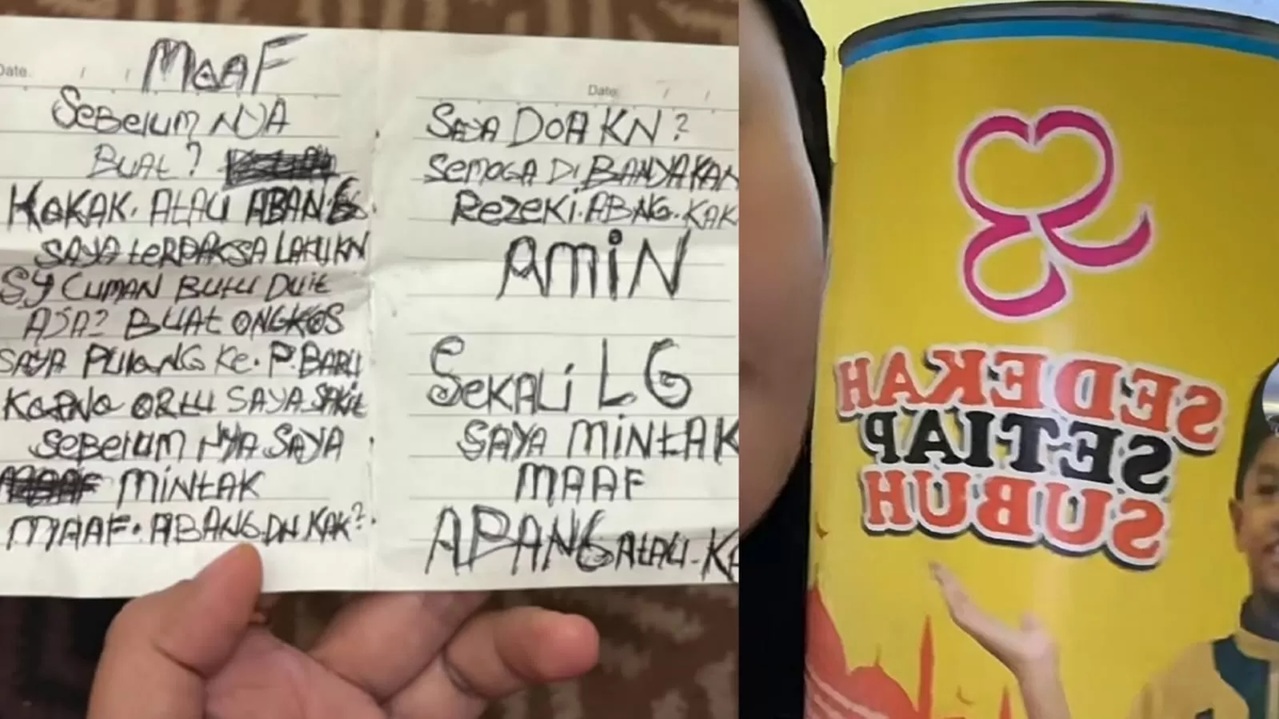 Date / /
MaaF
SEBELUM NYA
BUAT?
KAKAK. ATAU ABANG.
SAYA tERPAKSA LAKUKN
SY CUMAN BUtU DUIt
AJA? BUAt ONGKOS
SAYA PULANG KE. P. BARU
ORtU SAYA SAKIt
SEBELUM NYA SAYA
MINtAK
MAAF. ABANG DN KAK?
Date / /
SAYA DOA KN?
SEMOGA DI BANYAKAN
REZEKI. ABNG. KAK
AMiN
SEKALi LG
SAYA MINtAK
MAAF
ABANG AtAU. KA
SEDEKAH
SETIAP
SUBUH